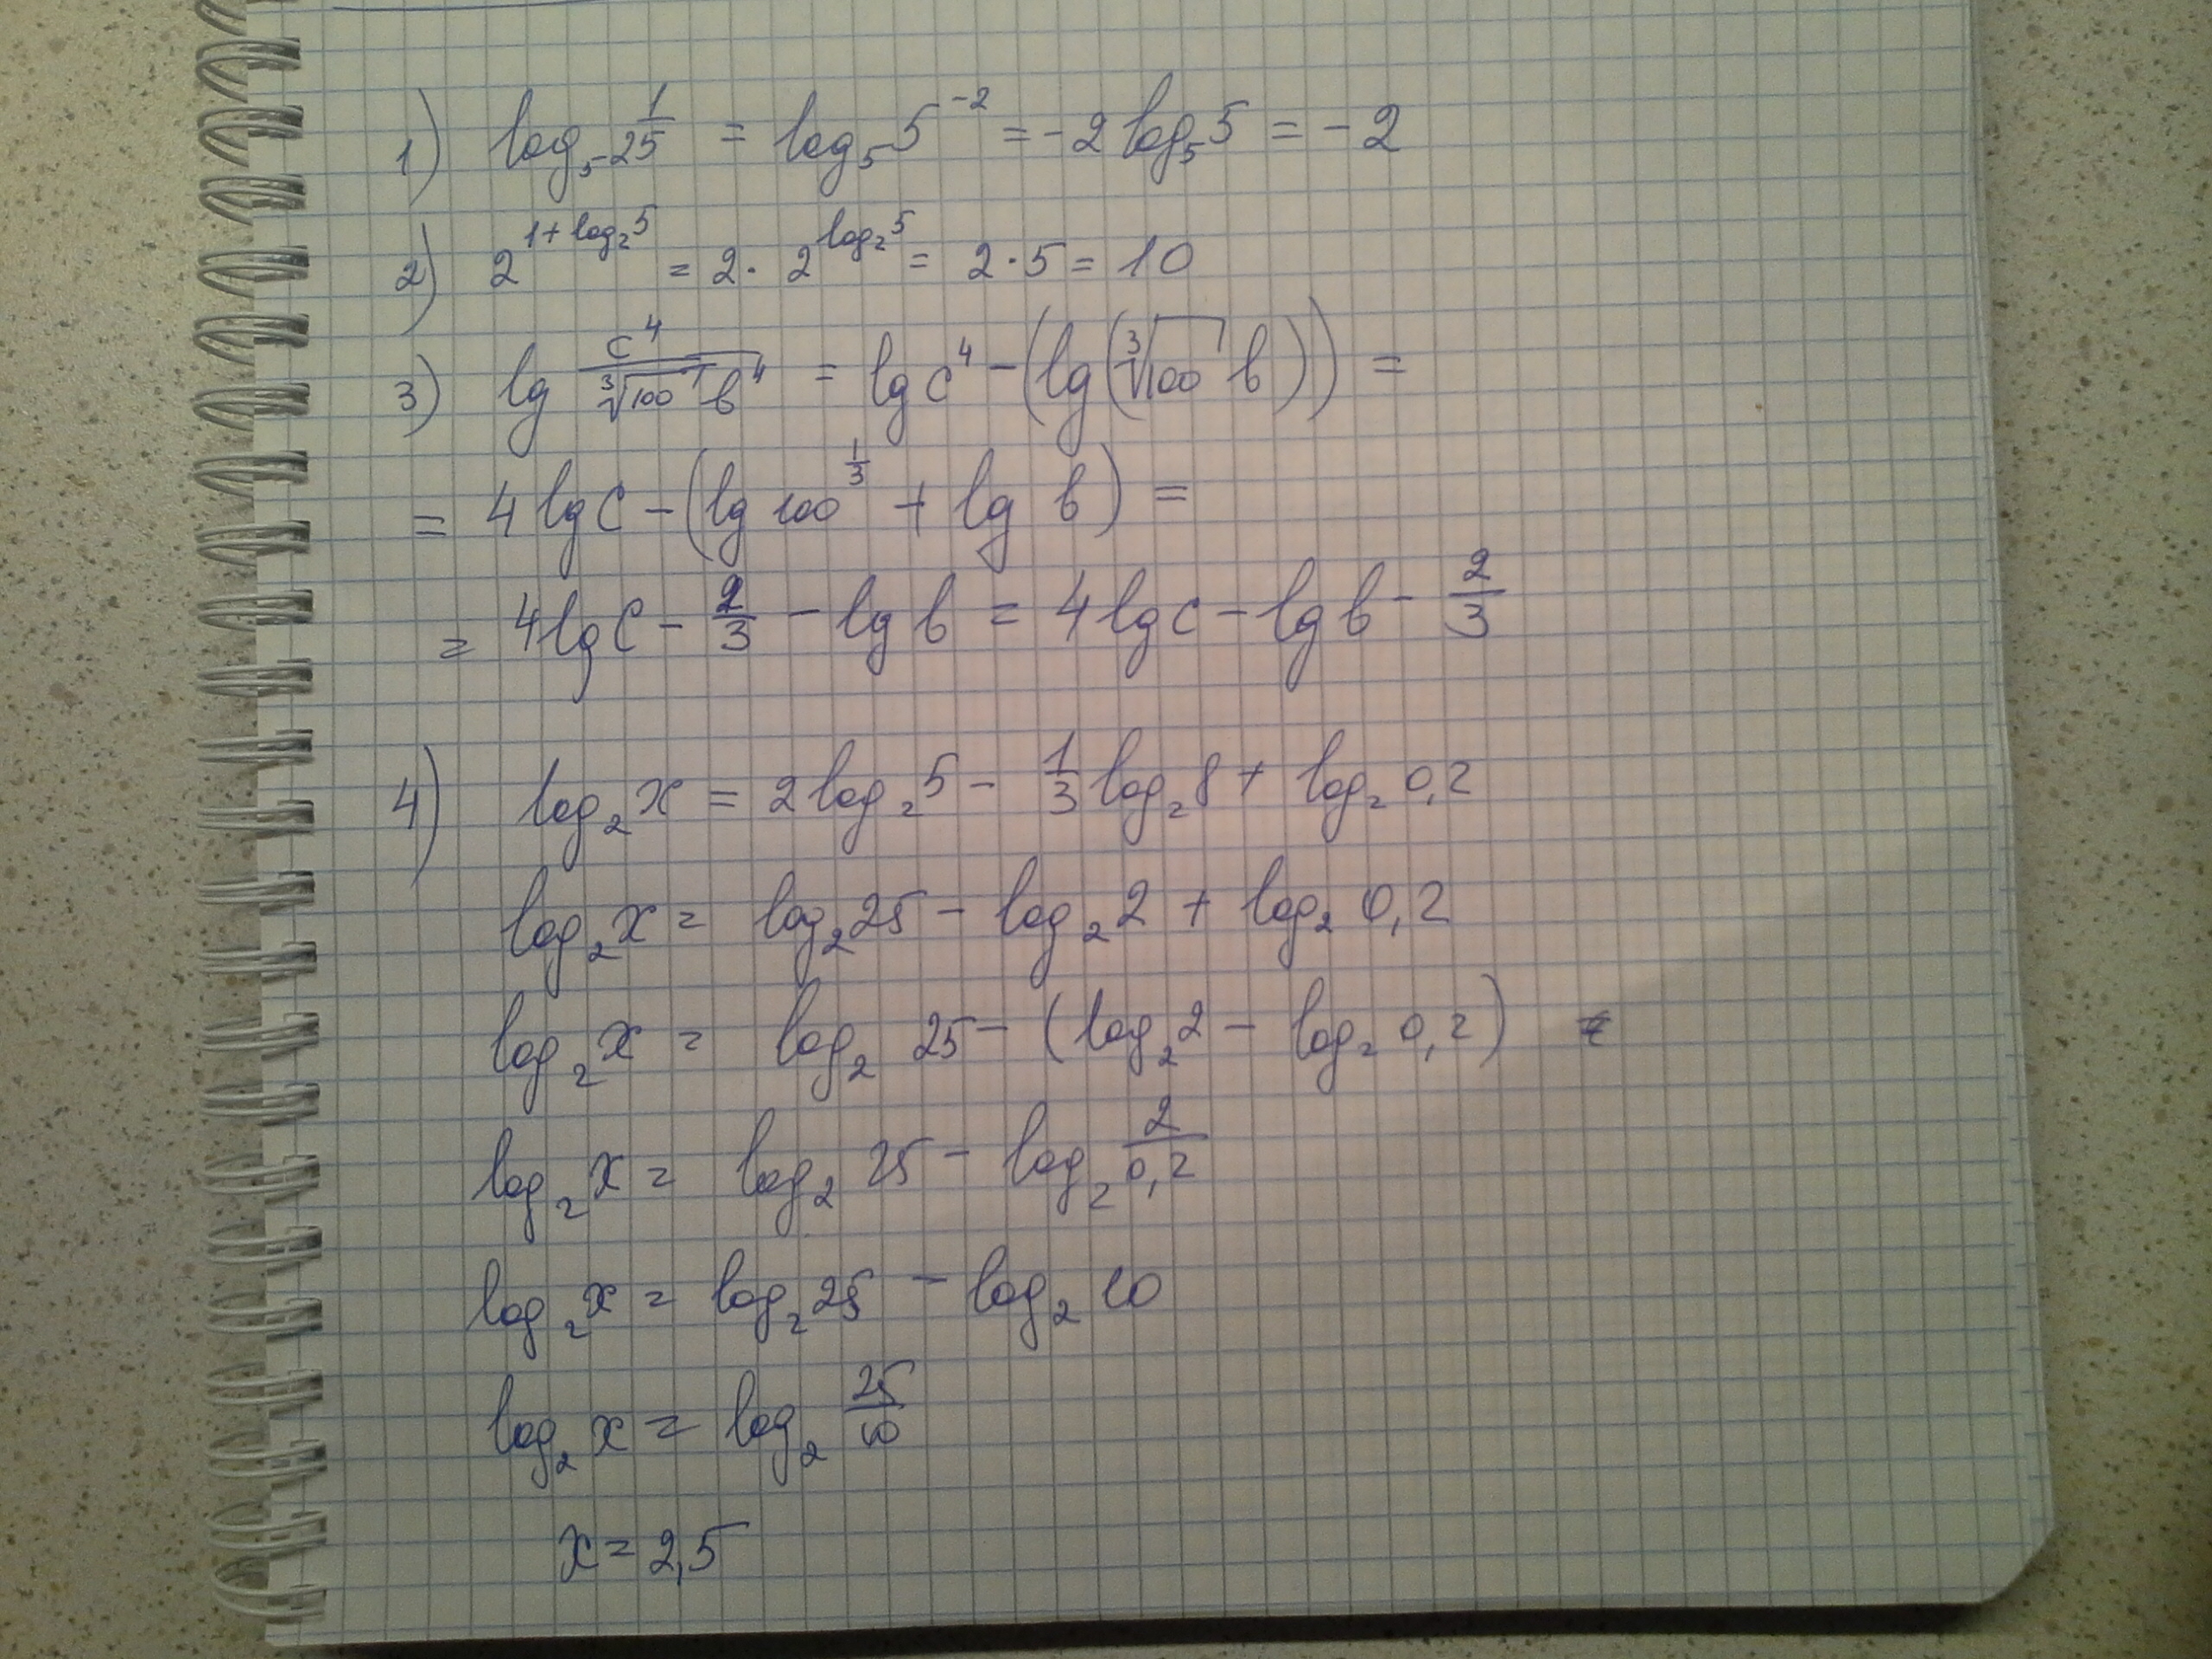 1) log₅ 1/25 = log₅ 5⁻² = -2 log₅ 5 = -2
2) 2^(1+log₂5) = 2 · 2^(log₂5) = 2 · 5 = 10
3) lg c⁴/(∛100 b⁴) = lg c⁴ - (lg(∛100 b)) =
= 4 lg c - (lg 100^(1/3) + lg b) =
= 4 lg c - 2/3 - lg b = 4 lg c - lg b - 2/3
4) log₂ x = 2 log₂ 5 - 1/3 log₂ 8 + log₂ 0,2
log₂ x = log₂ 25 - log₂ 2 + log₂ 0,2
log₂ x = log₂ 25 - (log₂ 2 - log₂ 0,2)
log₂ x = log₂ 25 - log₂ 2/0,2
log₂ x = log₂ 25 - log₂ 10
log₂ x = log₂ 25/10
x = 2,5